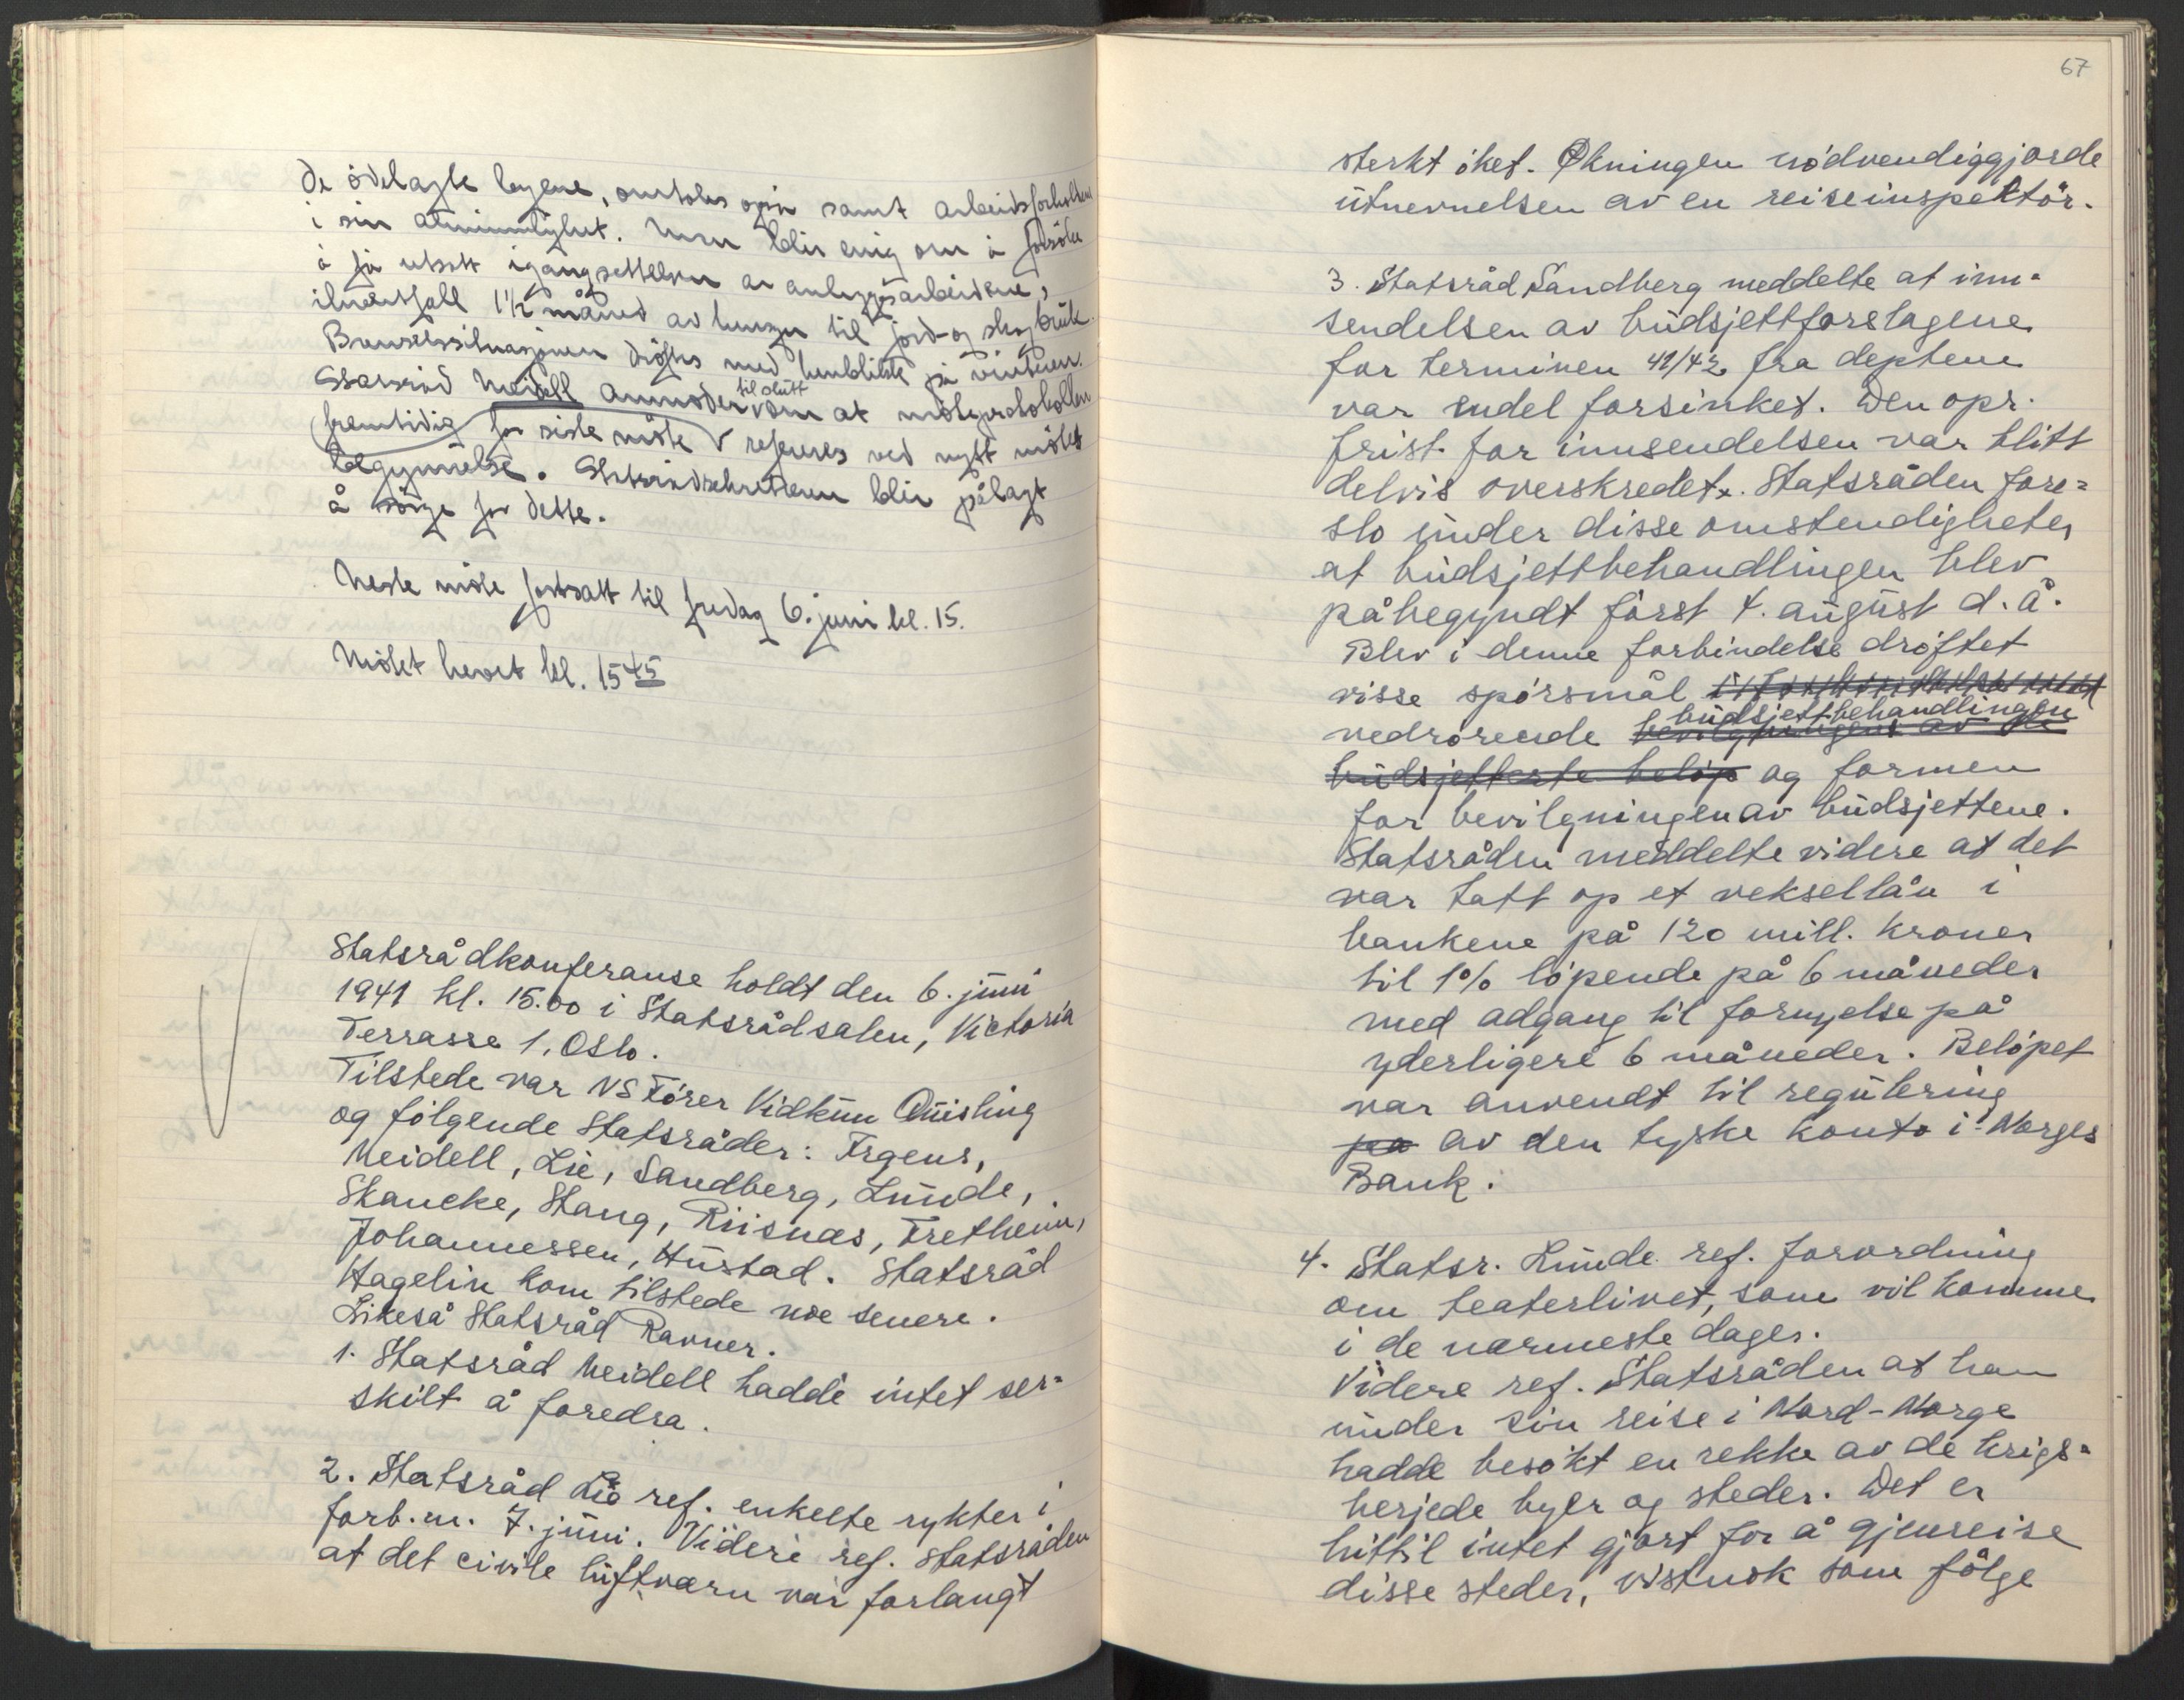 De ödelagte byene, omtales også samt arbeidsforholdene
i sin almindelighet. Man blir enig om å forsöke
å få utsatt igangsettelsen av anleggsarbeidene,
ihvertfall 1½ måned av hensyn til jord- og skogbruk.
Brenselssituasjonen dröftes med henblikk på vinteren.
Statsråd Meidell anmoder til slutt om at möteprotokollen
fremtidig for siste möte refereres ved nytt mötes
begynnelse. Statsrådsekretæren blir pålagt
å sörge for dette.
Neste möte fortsatt til fredag 6. juni kl. 15.
Mötet hevet kl. 15 45
Statsrådkonferanse holdt den 6. juni
1941 kl. 15.00 i Statsrådsalen, Victoria
Terrasse 1, Oslo.
Tilstede var NS Förer Vidkun Quisling
og fölgende Statsråder: Irgens,
Meidell, Lie, Sandberg, Lunde,
Skancke, Stang, Riisnæs, Fretheim,
Johannessen, Hustad. Statsråd
Hagelin kom tilstede noe senere.
Likeså Statsråd Ravner.
1. Statsråd Meidell hadde intet ser=
skilt å foredra.
2. Statsråd Lie ref. enkelte rykter i
forb. m. 7. juni. Videre ref. statsråden
at det civile luftvern var forlangt
67
sterkt öket. Økningen nödvendiggjorde
utnevnelsen av en reiseinspektör.
3. Statsråd Sandberg meddelte at inn=
sendelsen av budsjettforslagene
for terminen 41/42 fra deptene
var endel forsinket. Den opr.
frist for innsendelsen var blitt
delvis overskredet. Statsråden fore=
slo under disse omstendigheter
at budsjettbehandlingen blev
påbegyndt först 1. august d. å.
Blev i denne forbindelse dröftet
visse spörsmål
budsjettbehandlingen
vedrörende bevilgningene av de
budsjetterte belöp og formen
for bevilgningen av budsjettene.
Statsråden meddelte videre at det
var tatt op et veksellån i
bankene på 120 mill. kroner
til 1% löpende på 6 måneder
med adgang til fornyelse på
yderligere 6 måneder. Belöpet
var anvendt til regulering
på av den tyske konto i Norges
Bank.
4. Statsr. Lunde ref. forordning
om teaterlivet, som vil komme
i de nærmeste dager.
Videre ref. Statsråden at han
under sin reise i Nord-Norge
hadde besökt en rekke av de krigs=
herjede byer og steder. Det er
hittil intet gjort for å gjenreise
disse steder, vistnok som fölge